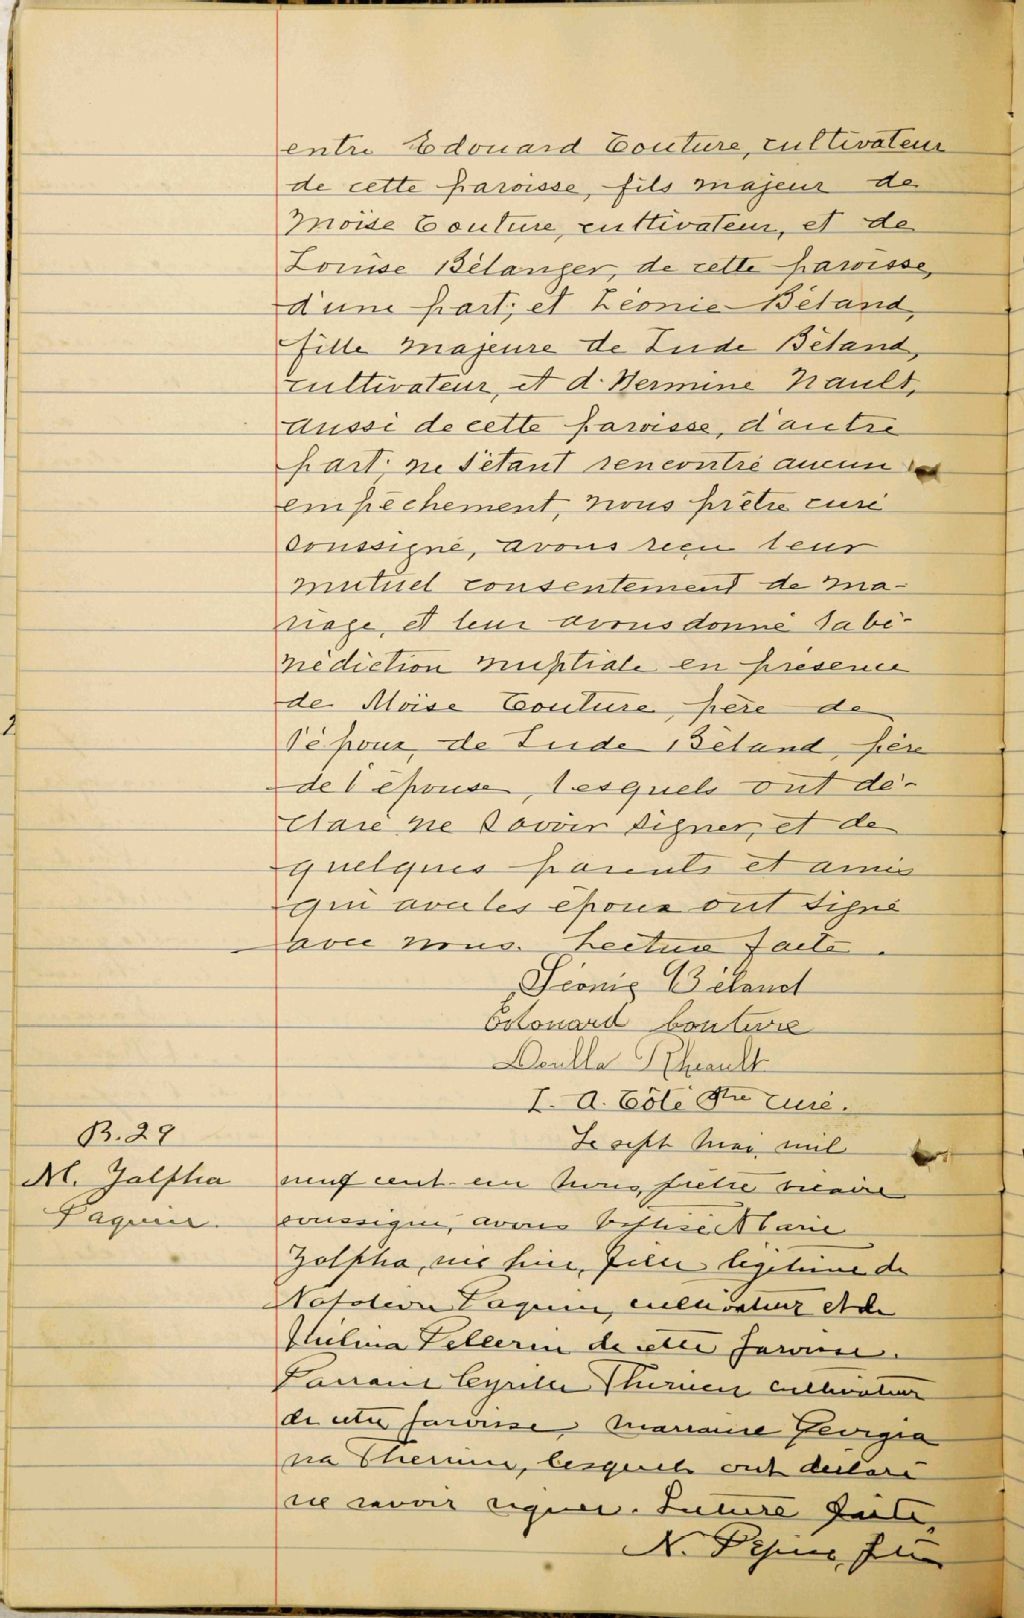 entre Edouard Couture, cultivateur
de cette paroisse, fils majeur de
Moïse Couture, cultivateur, et de
Louise Bélanger, de cette paroisse,
d'une part; et Léonie Béland,
fille majeure de Jude Béland,
cultivateur, et d'Hermine Nault,
aussi de cette paroisse, d'autre
part; ne s'étant rencontré aucun
empêchement, nous prêtre curé
soussigné, avons reçu leur
mutuel consentement de ma-
riage, et leur avons donné la bé-
nédiction nuptiale en présence
de Moïse Couture, père de
l'époux, de Jude Béland, père
de l'épouse, lesquels ont dé-
claré ne savoir signer, et de
quelques parents et amis
qui avec les époux ont signé
avec nous. Lecture faite.
Léonie Béland
Edouard Couture
Rheault
J. A. Côté Ptre curé.
B. 29
M. Zalpha
Paquin.
Le sept Mai, mil
neuf cent-un nous, prêtre vicaire
soussigné, avons baptisé Marie
Zalpha, née hier, fille légitime de
Napoléon Paquin, cultivateur et de
Thélina Pellerin de cette paroisse.
Parrain Cyrille Therrien cultivateur
de cette paroisse, marraine Georgia
na Therrien, lesquels ont déclaré
ne savoir signer. Lecture faite,
N. Pépin, ptre